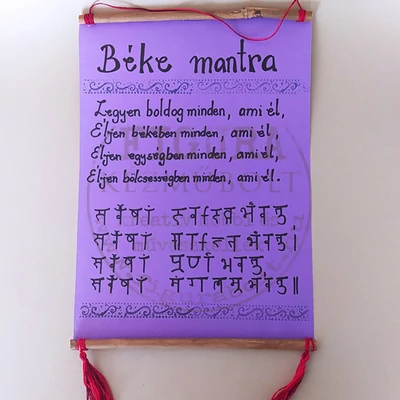 Béke mantra
Legyen boldog minden, ami él,
Éljen békében minden, ami él,
Éljen egységben minden, ami él,
Éljen bölcsességben minden, ami él.
सर्वेषां स्वस्ति भवतु,
सर्वेषां शान्ति भवतु,
सर्वेषां पूर्णं भवतु,
सर्वेषां मंगलम् भवतु॥
KÉZMŰBOLT